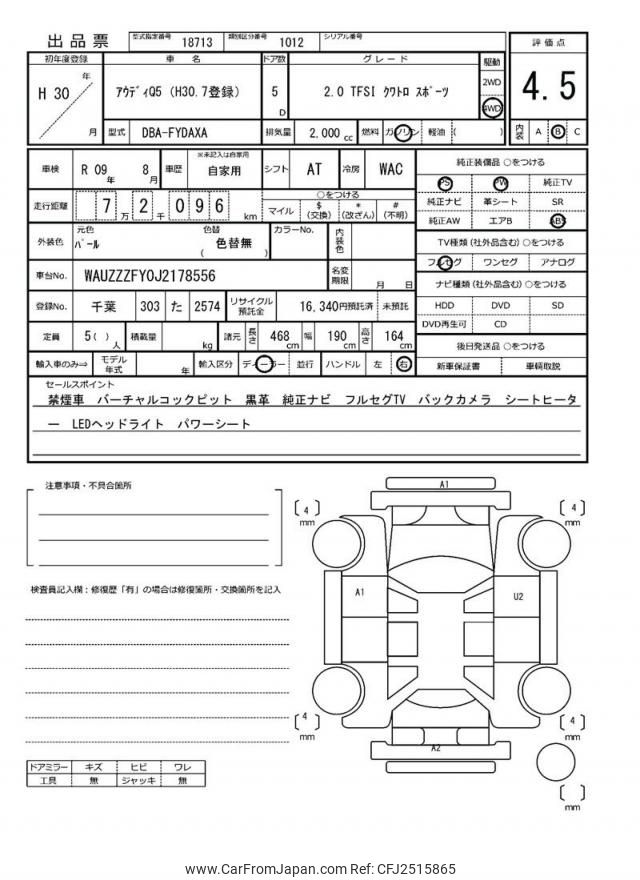 出品票 型式指定番号 18713 類別区分番号 1012 シリアル番号
初年度登録 車名 ドア数 グレード 駆動 評価点
H 30 年 月 アウディQ5 (H30.7登録) 5 D 2.0 TFSI クワトロ スポーツ 2WD 4WD 4.5
型式 DBA-FYDAXA 排気量 2,000 cc 燃料 ガソリン 軽油 ( ) 内装 A B C
車検 R 09 年 8 月 車歴 ※未記入は自家用 自家用 シフト AT 冷房 WAC
走行距離 7 万 2 千 0 9 6 km ○をつける マイル $ (交換) * (改ざん) # (不明)
外装色 元色 パール 色替 色替無 ( ) カラーNo. 内装色
車台No. WAUZZZFY0J2178556 名変期限 月 日
登録No. 千葉 303 た 2574 リサイクル預託金 16,340円預託済 未預託
定員 5 ( ) 人 積載量 kg 諸元 長さ 468 cm 幅 190 cm 高さ 164 cm
輸入車のみ⇒ モデル年式 年 輸入区分 ディーラー 並行 ハンドル 左 右
純正装備品 ○をつける
PS PW 純正TV
純正ナビ 革シート SR
純正AW エアB ABS
TV種類 (社外品含む) ○をつける
フルセグ ワンセグ アナログ
ナビ種類 (社外品含む) ○をつける
HDD DVD SD
DVD再生可 CD
後日発送品 ○をつける
新車保証書 車輌取説
セールスポイント
禁煙車 バーチャルコックピット 黒革 純正ナビ フルセグTV バックカメラ シートヒータ
ー LEDヘッドライト パワーシート
注意事項・不具合箇所
検査員記入欄:修復歴「有」の場合は修復箇所・交換箇所を記入
A1
4 mm
4 mm
A1
U2
4 mm
4 mm
A2
mm
ドアミラー キズ ヒビ ワレ
工具 無 ジャッキ 無
www.CarFromJapan.com Ref: CFJ2515865